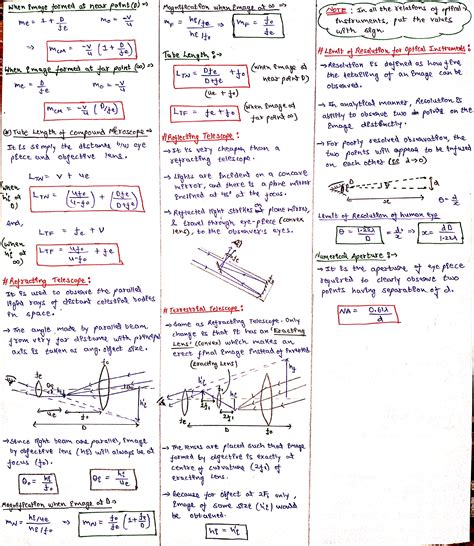 When Image formed at near point (D) →
me = 1 + D/fe    mo = -v/u
→ mCM = -v/u (1 + D/fe)
When Image formed at far point (∞) →
me = D/fe    mo = -v/u
mCM = -v/u (D/fe)
Tube Length of Compound Microscope →
→ It is simply the distance b/w eye
piece and objective lens.
LTN = v + ue
When
at D
And,
LTF = v + fe
(when
at ∞)
# Refracting Telescope :
→ It is used to observe the parallel
light rays of distant celestial bodies
in space.
→ The angle made by parallel beam
from very far distance with principal
axis is taken as ang. object size.
fe
fo
ue
fo
D
→ Since light beam are parallel, Image
by objective lens (hi) will always be at
focus (fo).
Magnification when Image at D →
mN = hi/ue / hi/fo ⇒ mN = fo/fe (1 + fe/D)
Magnification when Image at ∞ →
mF = hi/fe / hi/fo ⇒ mF = fo/fe
Tube Length :→
LTN = Dfe/D+fe + fo (when Image at
near point D)
(ue + fo)
LTF = fe + fo (when Image at
far point ∞)
# Reflecting Telescope :
→ It is very cheaper than a
refracting telescope.
→ Lights are incident on a concave
mirror, and there is a plane mirror
inclined at 45° at the focus.
→ Reflected light strikes on plane mirror,
& travel through eye-piece (convex
lens), to the observer's eyes.
# Terrestrial Telescope :
→ Same as Refracting Telescope. Only
change is that it has an 'Erecting
Lens' (Convex) which makes an
erect final Image instead of inverted
(Erecting Lens)
D
→ The lenses are placed such that Image
formed by objective is exactly at
centre of curvature (2fo) of
erecting Lens.
→ Because for object at 2F, only
Image of same size (hi') would
be obtained.
hi = hi'
NOTE : In all the relations of optical
Instruments, put the values
with sign.
# Limit of Resolution for Optical Instruments :
→ Resolution is defined as how fine
the detailing of an Image can be
observed.
→ In analytical manner, Resolution is
ability to observe two points on the
Image distinctly.
→ For poorly resolved observation, the
two points will appear to be infused
on each other (as d → 0)
x
d
θ = d/x
Limits of Resolution of human eye
θ = 1.22λ/D = d/x ⇒ x = dD/1.22λ
Numerical Aperture :→
→ It is the aperture of eye piece
required to clearly observe two
points having separation of d.
NA = 0.61λ/d